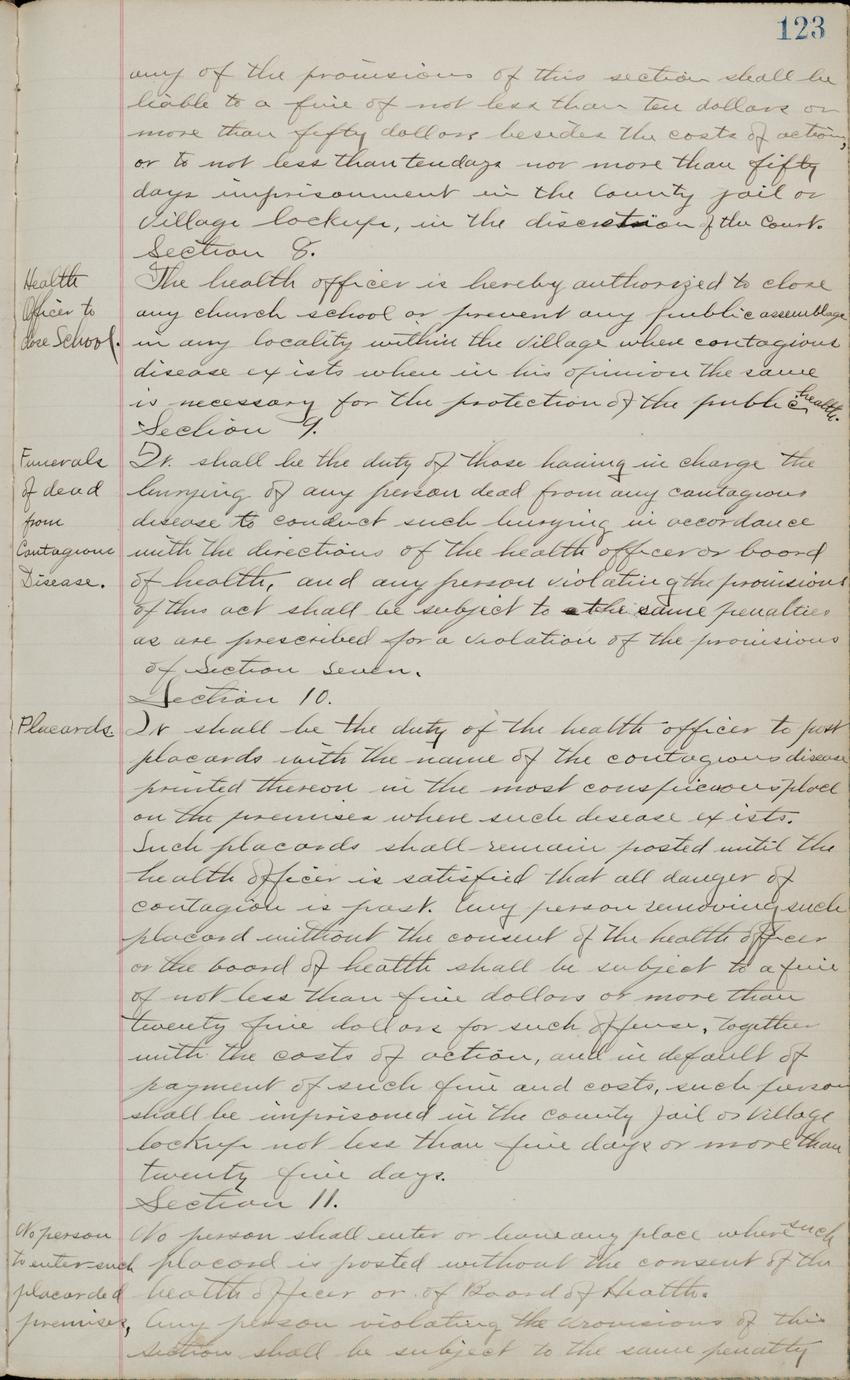 123
any of the provisions of this section shall be
liable to a fine of not less than ten dollars or
more than fifty dollars besides the costs of action,
or to not less than ten days nor more than fifty
days imprisonment in the County jail or
Village lockup, in the discretion of the Court.
Section 8.
Health
Officer to
close School.
The health officer is hereby authorized to close
any church school or prevent any public assemblage
in any locality within the village where contagious
disease exists when in his opinion the same
is necessary for the protection of the public health.
Section 9.
Funerals
of dead
from
Contagious
Disease.
It shall be the duty of those having in charge the
burying of any person dead from any contagious
disease to conduct such burying in accordance
with the directions of the health officer or board
of health, and any person violating the provisions
of this act shall be subject to the same penalties
as are prescribed for a violation of the provisions
of Section Seven.
Section 10.
Placards.
It shall be the duty of the health officer to post
placards with the name of the contagious disease
printed thereon in the most conspicuous place
on the premises where such disease exists.
Such placards shall remain posted until the
health officer is satisfied that all danger of
contagion is past. Any person removing such
placard without the consent of the health officer
or the board of health shall be subject to a fine
of not less than five dollars or more than
twenty five dollars for such offense, together
with the costs of action, and in default of
payment of such fine and costs, such person
shall be imprisoned in the county jail or village
lockup not less than five days or more than
twenty five days.
Section 11.
No person
to enter such
placarded
premises,
No person shall enter or leave any place where such
placard is posted without the consent of the
health officer or of Board of Health.
Any person violating the provisions of this
section shall be subject to the same penalty